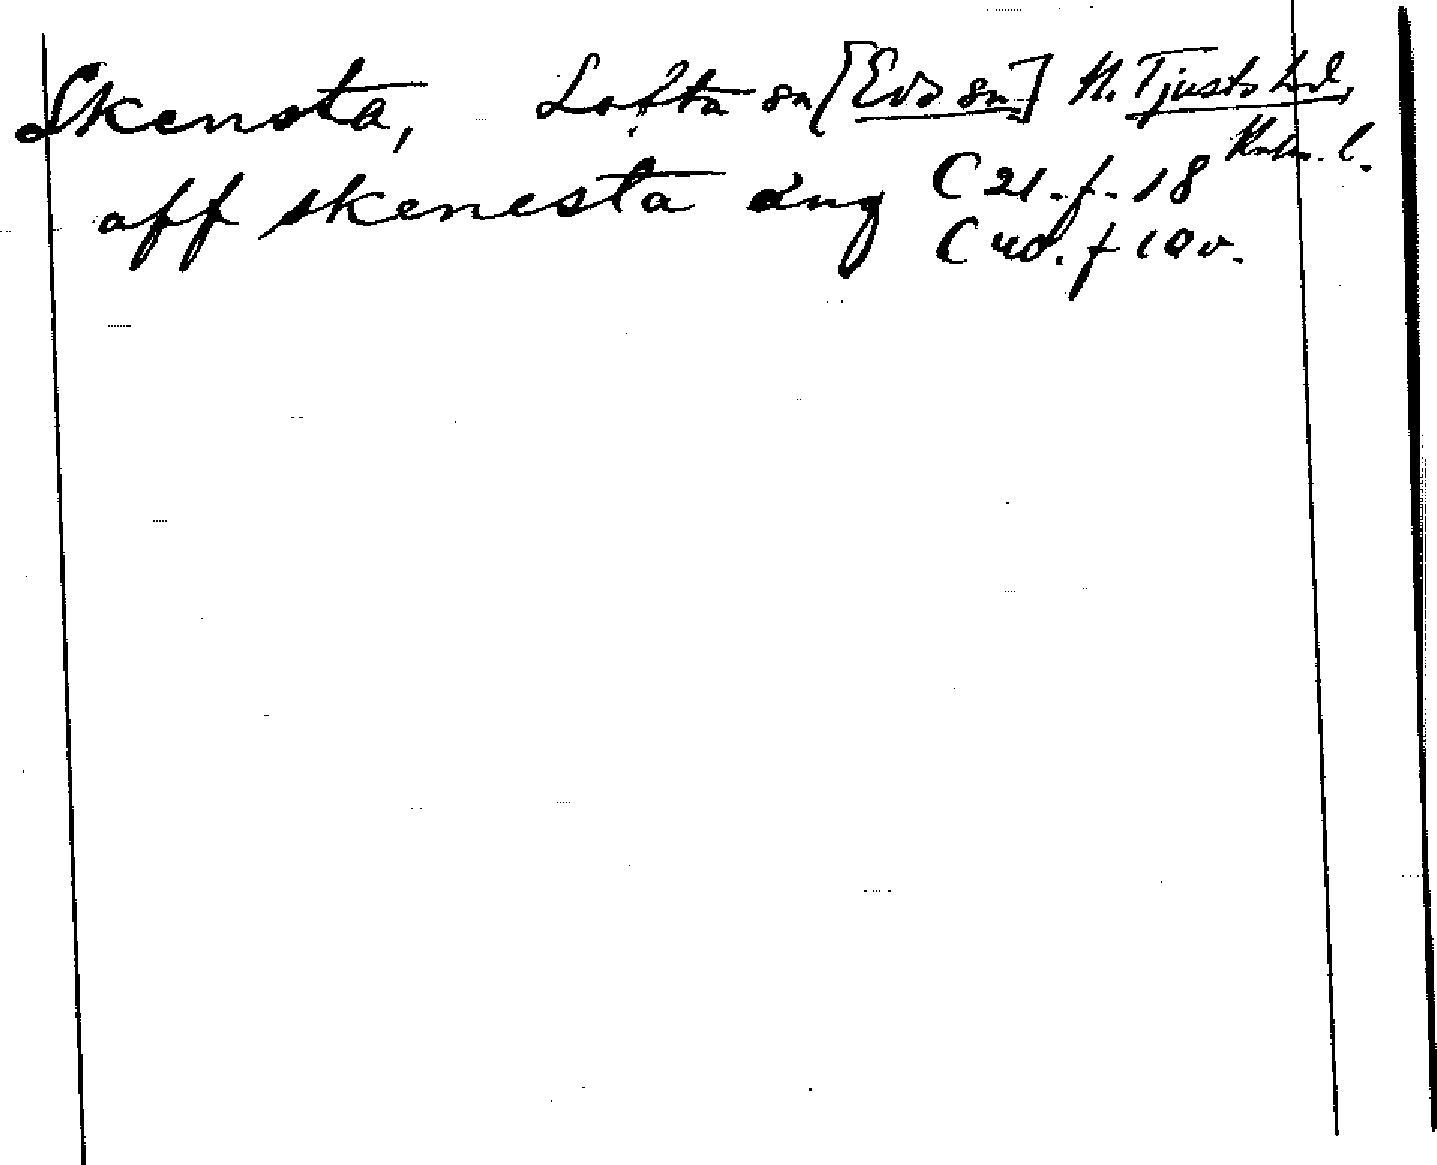 Skensta, Lofta sn [Eds sn] N. Tjusts hd,
Kalm. l.
aff skenesta äng C 21. f. 18
C 40. f 10 v.